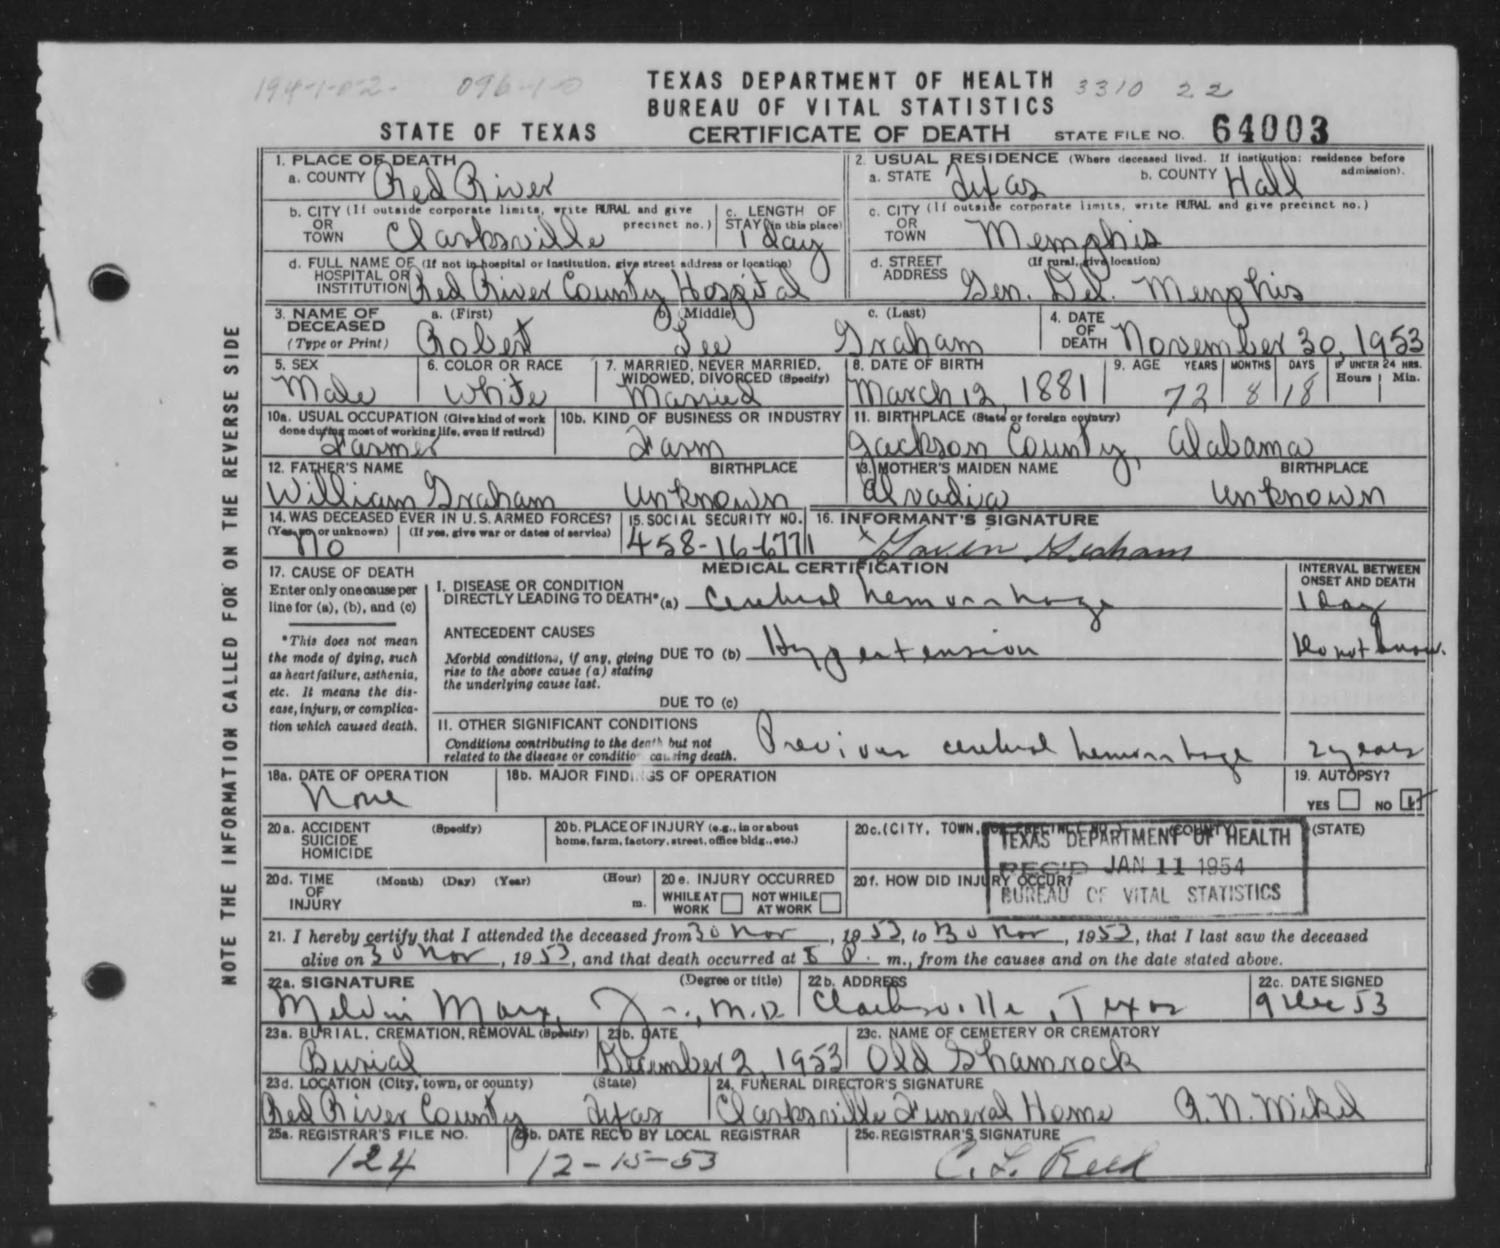 194-1-02- 096-1-0
TEXAS DEPARTMENT OF HEALTH 3310 22
BUREAU OF VITAL STATISTICS
STATE OF TEXAS CERTIFICATE OF DEATH STATE FILE NO. 64003
NOTE THE INFORMATION CALLED FOR ON THE REVERSE SIDE
1. PLACE OF DEATH
a. COUNTY Red River
2. USUAL RESIDENCE (Where deceased lived. If institution: residence before admission).
a. STATE Texas b. COUNTY Hall
b. CITY (If outside corporate limits, write RURAL and give precinct no.) OR TOWN Clarksville
c. LENGTH OF STAY (in this place) 1 day
c. CITY (If outside corporate limits, write RURAL and give precinct no.) OR TOWN Memphis
d. FULL NAME OF (If not in hospital or institution, give street address or location) HOSPITAL OR INSTITUTION Red River County Hospital
d. STREET ADDRESS (If rural, give location) Gen. Del. Memphis
3. NAME OF DECEASED (Type or Print) a. (First) Robert b. (Middle) Lee c. (Last) Graham
4. DATE OF DEATH November 30, 1953
5. SEX Male
6. COLOR OR RACE White
7. MARRIED, NEVER MARRIED, WIDOWED, DIVORCED (Specify) Married
8. DATE OF BIRTH March 12, 1881
9. AGE YEARS 72 MONTHS 8 DAYS 18 IF UNDER 24 HRS. Hours Min.
10a. USUAL OCCUPATION (Give kind of work done during most of working life, even if retired) Farmer
10b. KIND OF BUSINESS OR INDUSTRY Farm
11. BIRTHPLACE (State or foreign country) Jackson County, Alabama
12. FATHER'S NAME William Graham BIRTHPLACE Unknown
13. MOTHER'S MAIDEN NAME Alvadia BIRTHPLACE Unknown
14. WAS DECEASED EVER IN U.S. ARMED FORCES? (Yes, no or unknown) No (If yes, give war or dates of service)
15. SOCIAL SECURITY NO. 458-16-6771
16. INFORMANT'S SIGNATURE x Gavin Graham
17. CAUSE OF DEATH
Enter only one cause per line for (a), (b), and (c)
*This does not mean the mode of dying, such as heart failure, asthenia, etc. It means the disease, injury, or complication which caused death.
MEDICAL CERTIFICATION
INTERVAL BETWEEN ONSET AND DEATH
I. DISEASE OR CONDITION DIRECTLY LEADING TO DEATH* (a) Cerebral hemorrhage 1 Day
ANTECEDENT CAUSES
Morbid conditions, if any, giving rise to the above cause (a) stating the underlying cause last.
DUE TO (b) Hypertension Do not know.
DUE TO (c)
II. OTHER SIGNIFICANT CONDITIONS
Conditions contributing to the death but not related to the disease or condition causing death. Previous cerebral hemorrhage 2 years
18a. DATE OF OPERATION None
18b. MAJOR FINDINGS OF OPERATION
19. AUTOPSY? YES NO
20a. ACCIDENT SUICIDE HOMICIDE (Specify)
20b. PLACE OF INJURY (e.g., in or about home, farm, factory, street, office bldg., etc.)
20c. (CITY, TOWN, OR PRECINCT NO.) (COUNTY) (STATE)
TEXAS DEPARTMENT OF HEALTH
REC'D JAN 11 1954
BUREAU OF VITAL STATISTICS
20d. TIME OF INJURY (Month) (Day) (Year) (Hour) m.
20e. INJURY OCCURRED WHILE AT WORK NOT WHILE AT WORK
20f. HOW DID INJURY OCCUR?
21. I hereby certify that I attended the deceased from 30 Nov, 1953, to 30 Nov, 1953, that I last saw the deceased
alive on 30 Nov, 1953, and that death occurred at 8 P. m., from the causes and on the date stated above.
22a. SIGNATURE (Degree or title) Melvin Marx, Jr., M.D.
22b. ADDRESS Clarksville, Texas
22c. DATE SIGNED 9 Dec 53
23a. BURIAL, CREMATION, REMOVAL (Specify) Burial
23b. DATE December 2, 1953
23c. NAME OF CEMETERY OR CREMATORY Old Shamrock
23d. LOCATION (City, town, or county) (State) Red River County Texas
24. FUNERAL DIRECTOR'S SIGNATURE Clarksville Funeral Home R. N. Mikel
25a. REGISTRAR'S FILE NO. 124
25b. DATE REC'D BY LOCAL REGISTRAR 12-15-53
25c. REGISTRAR'S SIGNATURE C. L. Reed